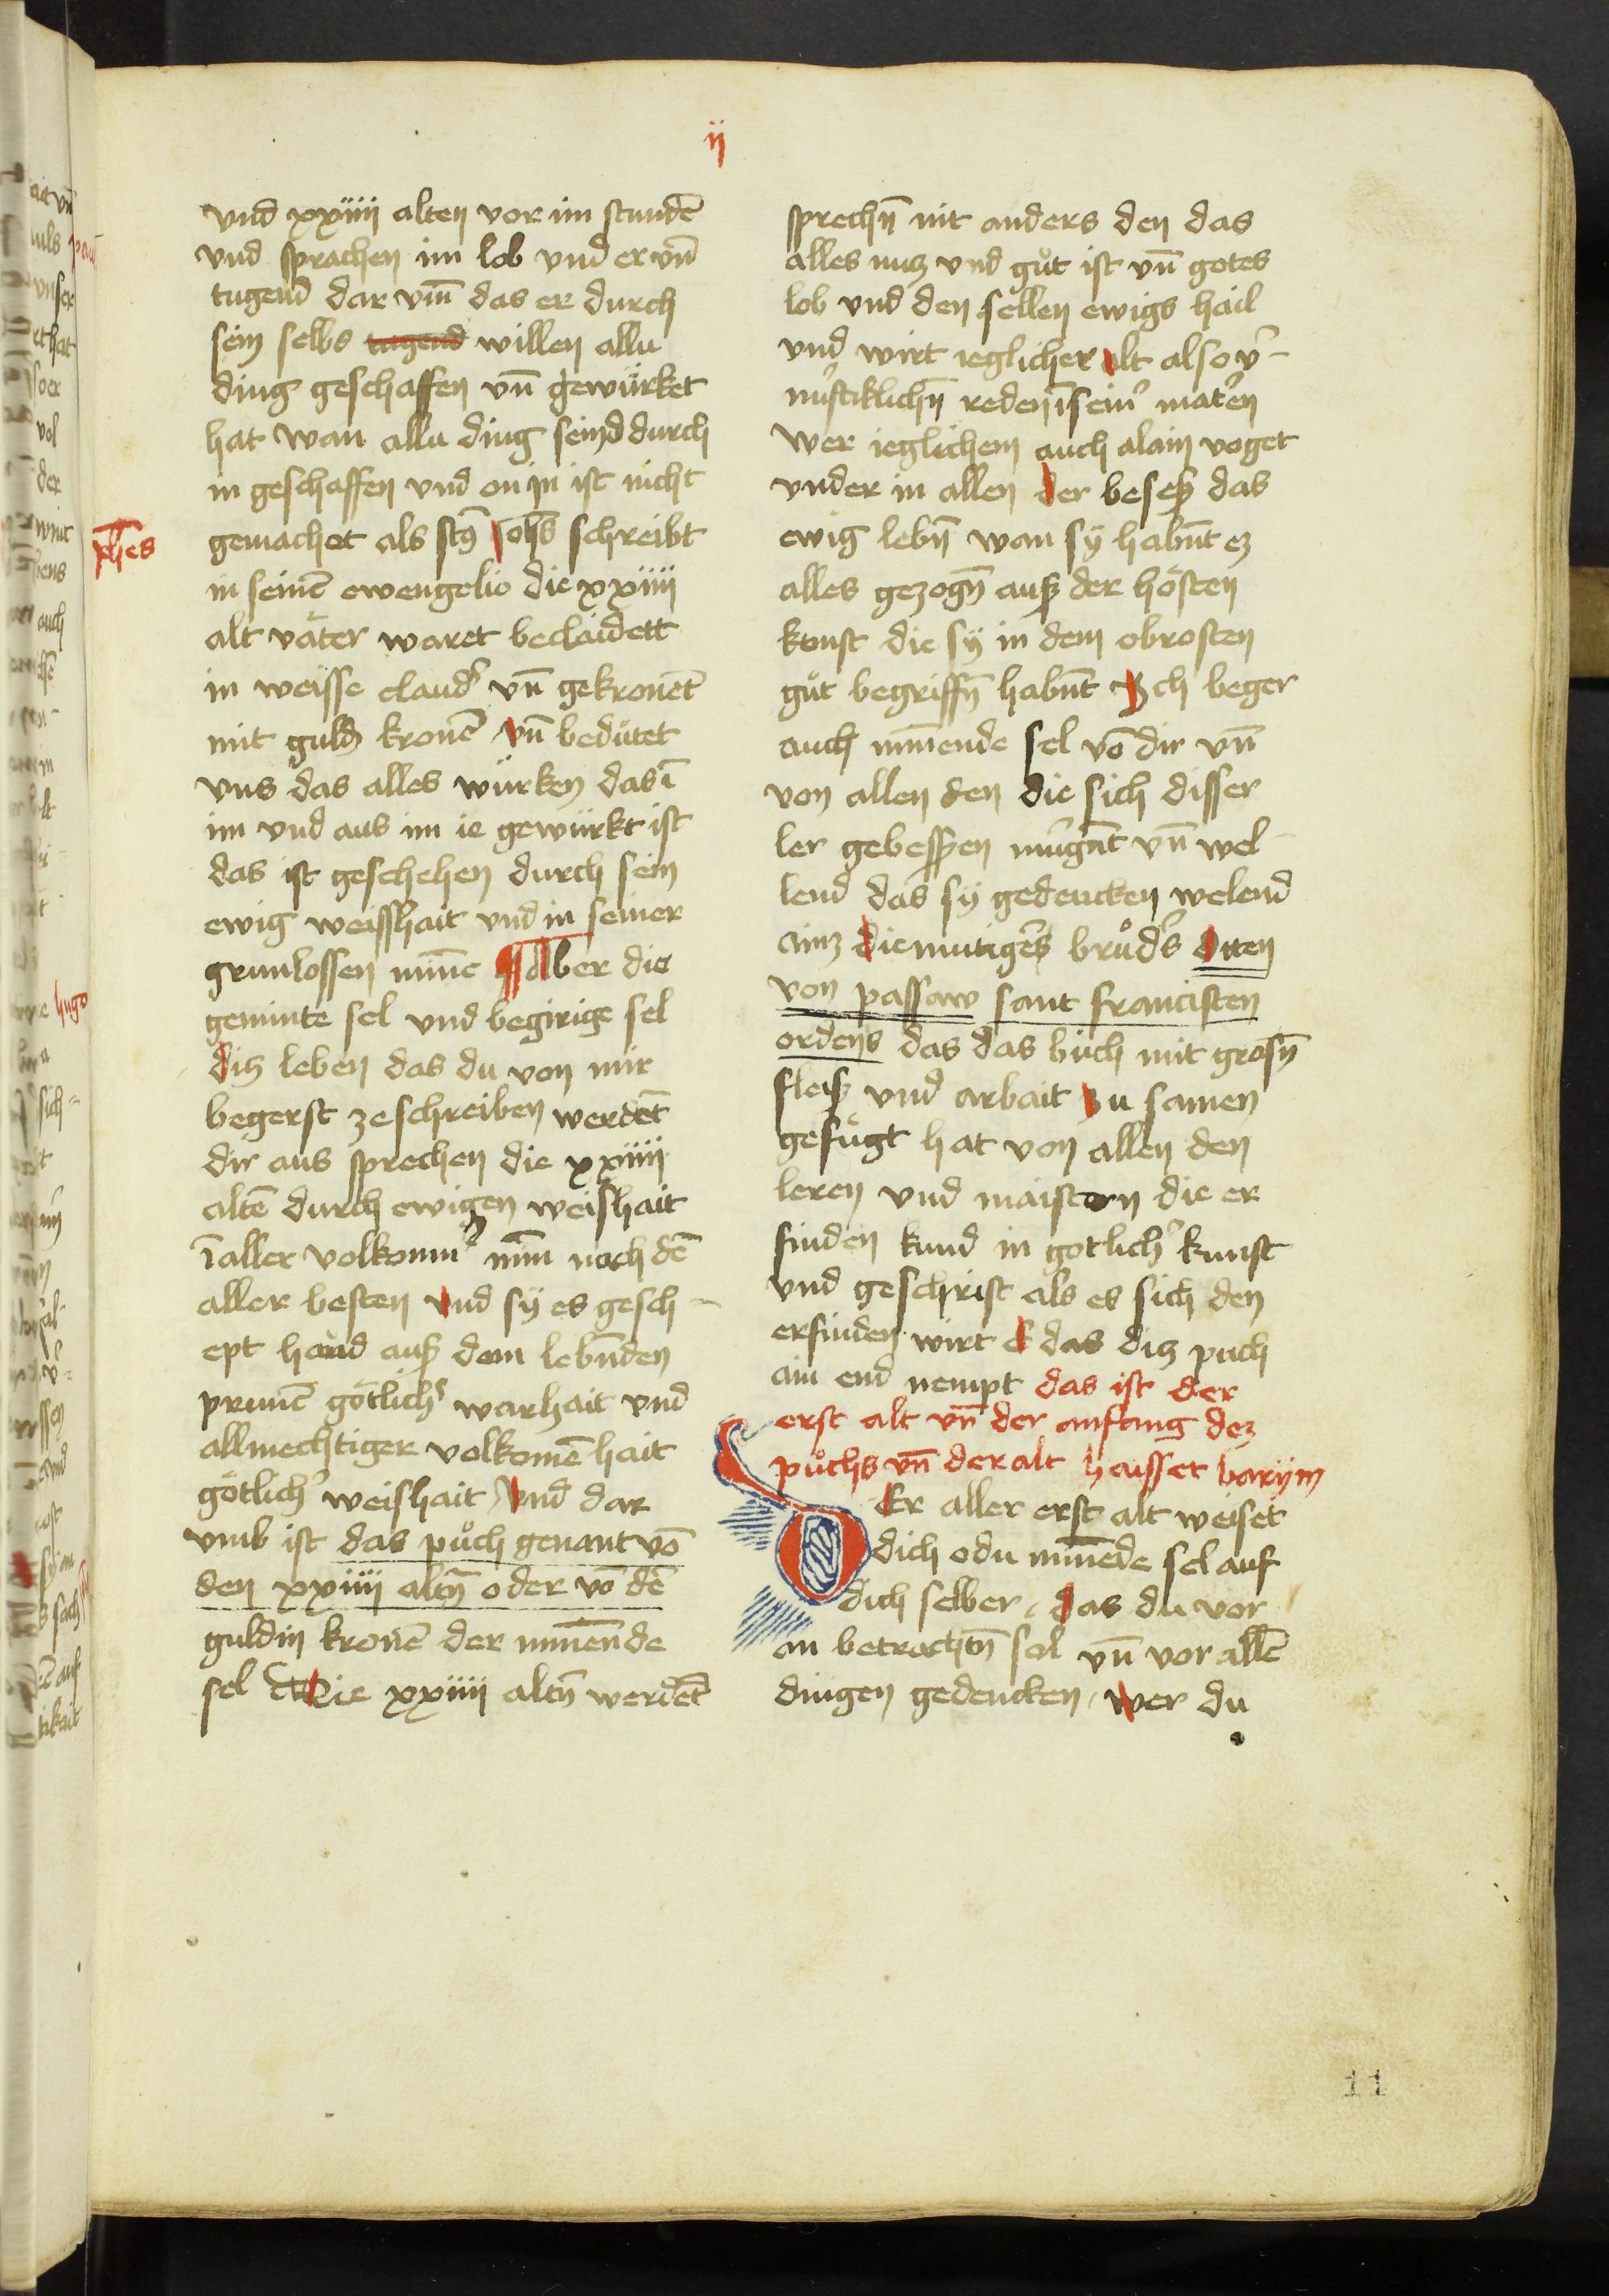 ij
vnd xxiiii alten vor im stundē
vnd sprachen im lob vnd er vn̄
tugend dar vm̄ das er durch
sein selbs tugend willen allu
ding geschaffen vn̄ gewürket
hat wan allu ding seind durch
in geschaffen vnd on in ist nicht
gemachet als scꝰ Johs̄ schreibt
in seinē ewengelio die xxiiii
alt väter waret beclaidett
in weisse claidˀ vn̄ gekronet
mit guldˀ kronē vn̄ bedütet
vns das alles würken das ī
im vnd aus im ie gewürkt ist
das ist geschehen durch sein
ewig weisshait vnd in seiner
grunlossen minne Aber die
geminte sel vnd begirige sel
diz leben das du von mir
begerst ze schreiben werdēt
dir aus sprechen die xxiiii
altē durch ewigen weishait
ī aller volkomnˀ min̄ noch dē
aller besten vnd sÿ es gesch-
ept hand auß dem lebn̄den
prunē götlichˀ warhait vnd
allmechtiger volkomē hait
götlichˀ weishait vnd dar
vmb ist das půch genant vō
den xxiiii altn̄ oder vō dē
guldin kronē der minnende
sel Die xxiiii altn̄ werdēt
sprechn̄ nit anders den das
alles nuz vnd gůt ist vn̄ gotes
lob vnd den sellen ewigs hail
vnd wirt ieglicher alt also vˀ-
nuftiklichn̄ reden ī seinˀ matˀen
wer ieglichem auch alain voget
vnder in allen der beseß das
ewig lebn̄ wan sÿ habn̄t ez
alles gezogn̄ auß der hösten
konst die sÿ in dem obrosten
gůt begriffn̄ habn̄t Ich beger
auch minnende sel vō dir vn̄
von allen den die sich disser
ler gebessˀen mugn̄t vn̄ wel-
lend das sÿ gedencken welend
ainz diemutigēs brůdˀs otten
von passaw sant francisten
ordens das das buch mit grosn̄
fleiß vnd arbait zu samen
gefügt hat von allen den
leren vnd maistern die er
finden kund in gotlichˀ kunst
vnd geschrift als es sich den
erfinden wirt E das diz puch
ain end nempt das ist der
erst alt vn̄ der anfang dez
půchs vn̄ der alt haisset barÿm
DEr aller erst alt weiset
dich o du minnēde sel auf
dich selber, das du vor
an betrachtn̄ sol vn̄ vor allē
dingen gedencken, wer du
11